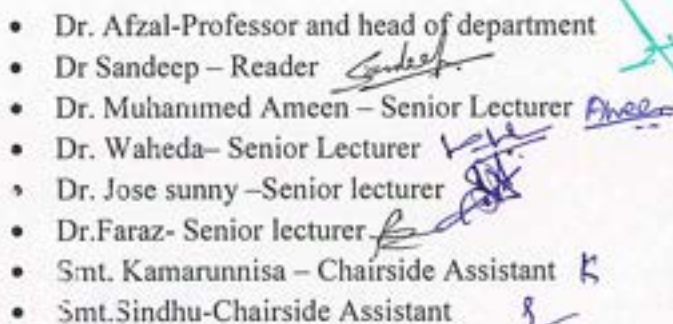 • Dr. Afzal-Professor and head of department
• Dr Sandeep – Reader Sandeep
• Dr. Muhammed Ameen – Senior Lecturer Ameen
• Dr. Waheda– Senior Lecturer
• Dr. Jose sunny –Senior lecturer
• Dr.Faraz- Senior lecturer
• Smt. Kamarunnisa – Chairside Assistant K
• Smt.Sindhu-Chairside Assistant